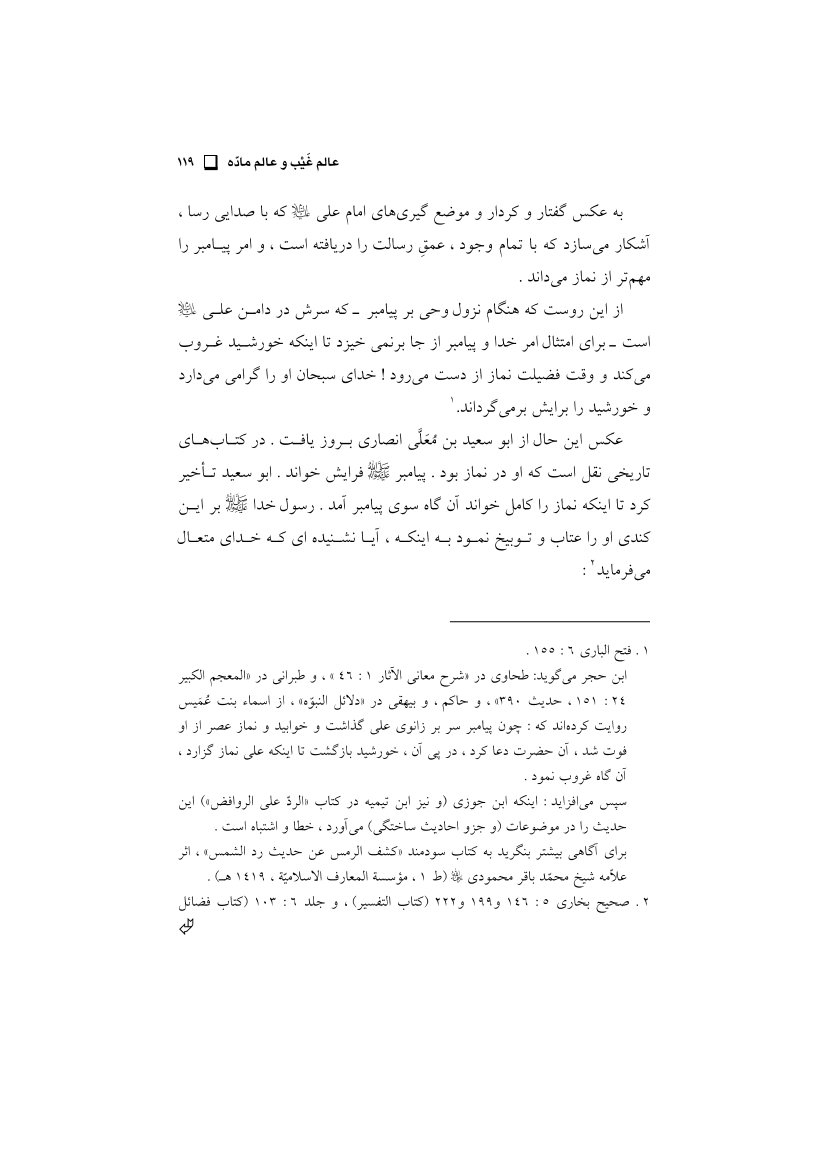 عالم غَيْب و عالم مادّه ❑ ١١٩
به عکس گفتار و کردار و موضع گیری‌های امام علی ﷷ که با صدایی رسا ،
آشکار می‌سازد که با تمام وجود ، عمقِ رسالت را دریافته است ، و امر پیـامبر را
مهم‌تر از نماز می‌داند .
از این روست که هنگام نزول وحی بر پیامبر ـ که سرش در دامـن علـی ﷷ
است ـ برای امتثال امر خدا و پیامبر از جا برنمی خیزد تا اینکه خورشـید غـروب
می‌کند و وقت فضیلت نماز از دست می‌رود ! خدای سبحان او را گرامی می‌دارد
و خورشید را برایش برمی‌گرداند.١
عکس این حال از ابو سعید بن مُعَلَّی انصاری بـروز یافـت . در کتـاب‌هـای
تاریخی نقل است که او در نماز بود . پیامبر ﷺ فرایش خواند . ابو سعید تـأخیر
کرد تا اینکه نماز را کامل خواند آن گاه سوی پیامبر آمد . رسول خدا ﷺ بر ایـن
کندی او را عتاب و تـوبیخ نمـود بـه اینکـه ، آیـا نشـنیده ای کـه خـدای متعـال
می‌فرماید٢ :
١ . فتح الباری ٦ : ١٥٥ .
ابن حجر می‌گوید: طحاوی در «شرح معانی الآثار ١ : ٤٦ » ، و طبرانی در «المعجم الکبیر
٢٤ : ١٥١ ، حدیث ٣٩٠» ، و حاکم ، و بیهقی در «دلائل النبوّه» ، از اسماء بنت عُمَیس
روایت کرده‌اند که : چون پیامبر سر بر زانوی علی گذاشت و خوابید و نماز عصر از او
فوت شد ، آن حضرت دعا کرد ، در پی آن ، خورشید بازگشت تا اینکه علی نماز گزارد ،
آن گاه غروب نمود .
سپس می‌افزاید : اینکه ابن جوزی (و نیز ابن تیمیه در کتاب «الردّ علی الروافض») این
حدیث را در موضوعات (و جزو احادیث ساختگی) می‌آورد ، خطا و اشتباه است .
برای آگاهی بیشتر بنگرید به کتاب سودمند «کشف الرمس عن حدیث رد الشمس» ، اثر
علاّمه شیخ محمّد باقر محمودی (ط ١ ، مؤسسة المعارف الاسلامیّة ، ١٤١٩ هـ) .
٢ . صحیح بخاری ٥ : ١٤٦ و١٩٩ و٢٢٢ (کتاب التفسیر) ، و جلد ٦ : ١٠٣ (کتاب فضائل